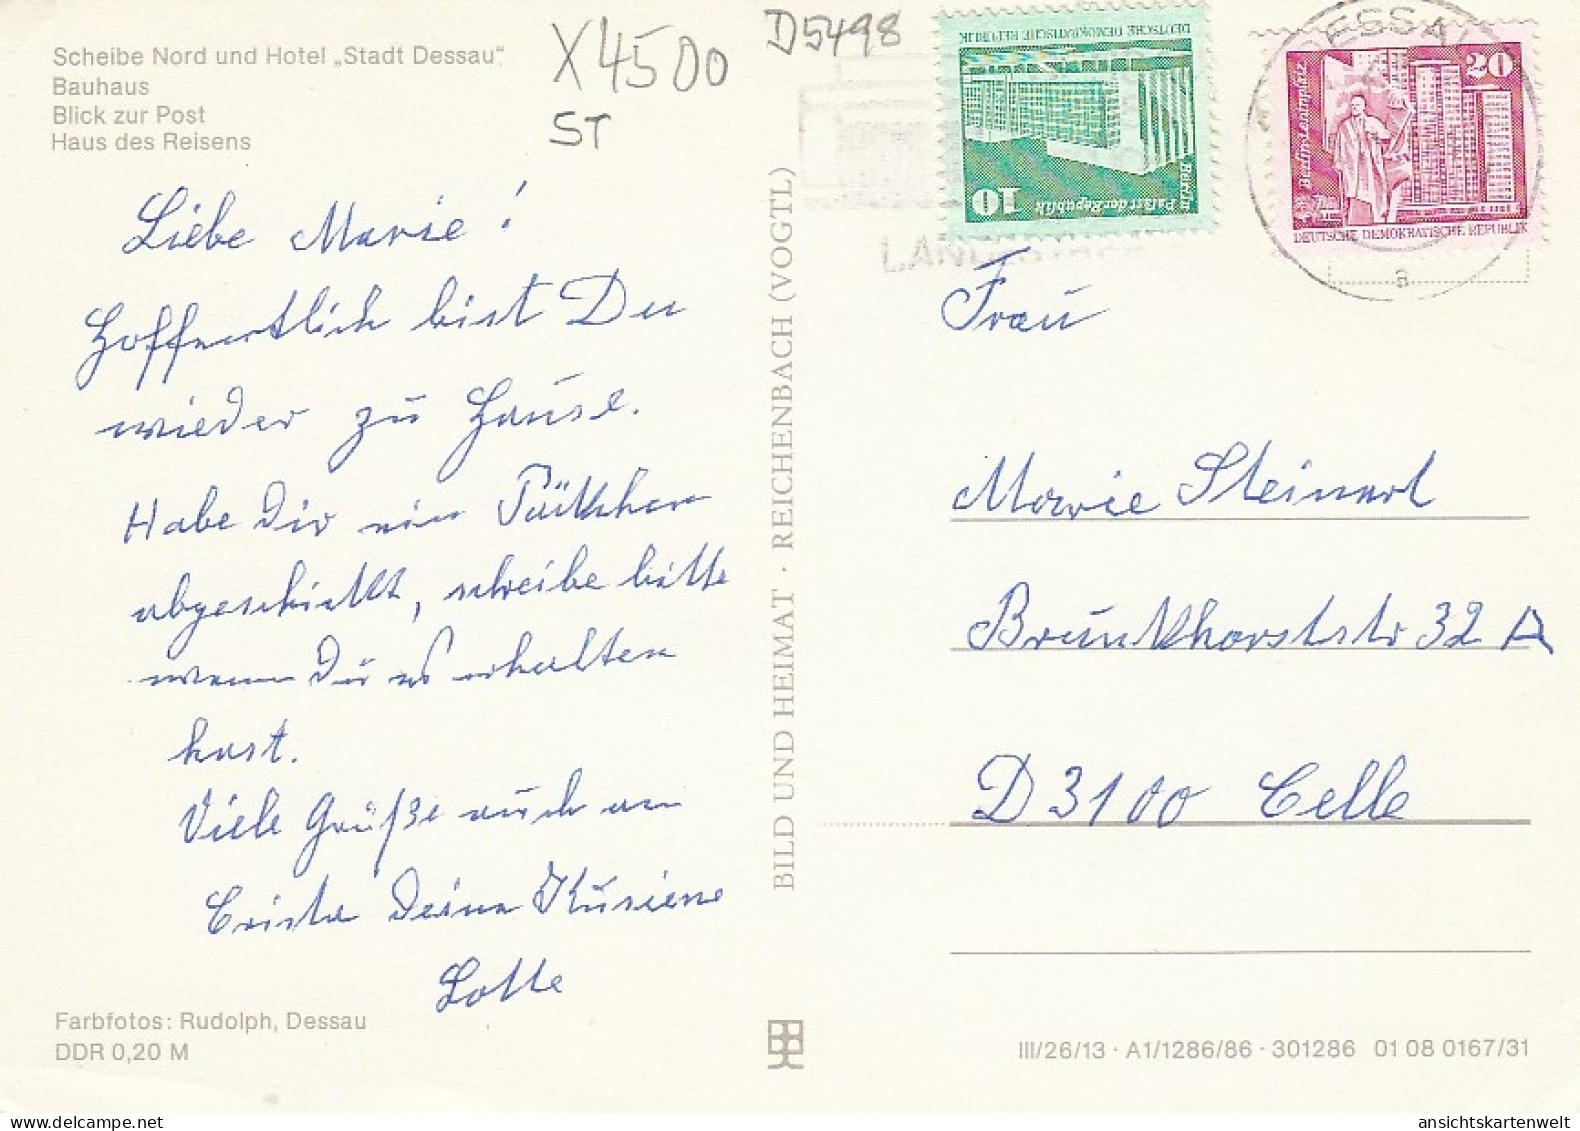 Scheibe Nord und Hotel „Stadt Dessau“,
Bauhaus
Blick zur Post
Haus des Reisens
X4500
ST
D5498
Liebe Marie!
Hoffentlich bist Du
wieder zu Hause.
Habe Dir ein Päckchen
abgeschickt, schreibe bitte
wenn Du es erhalten
hast.
Viele Grüße auch an
Crista Deine Kusiene
Lotte
Farbfotos: Rudolph, Dessau
DDR 0,20 M
BILD UND HEIMAT · REICHENBACH (VOGTL)
DEUTSCHE DEMOKRATISCHE REPUBLIK
10
Berlin
Palast der Republik
DESSAU
a
20
Berlin-Leninplatz
DEUTSCHE DEMOKRATISCHE REPUBLIK
Frau
Marie Steinert
Brunkhorststr 32 A
D 3100 Celle
III/26/13 · A1/1286/86 · 301286 01 08 0167/31
ansichtskartenwelt